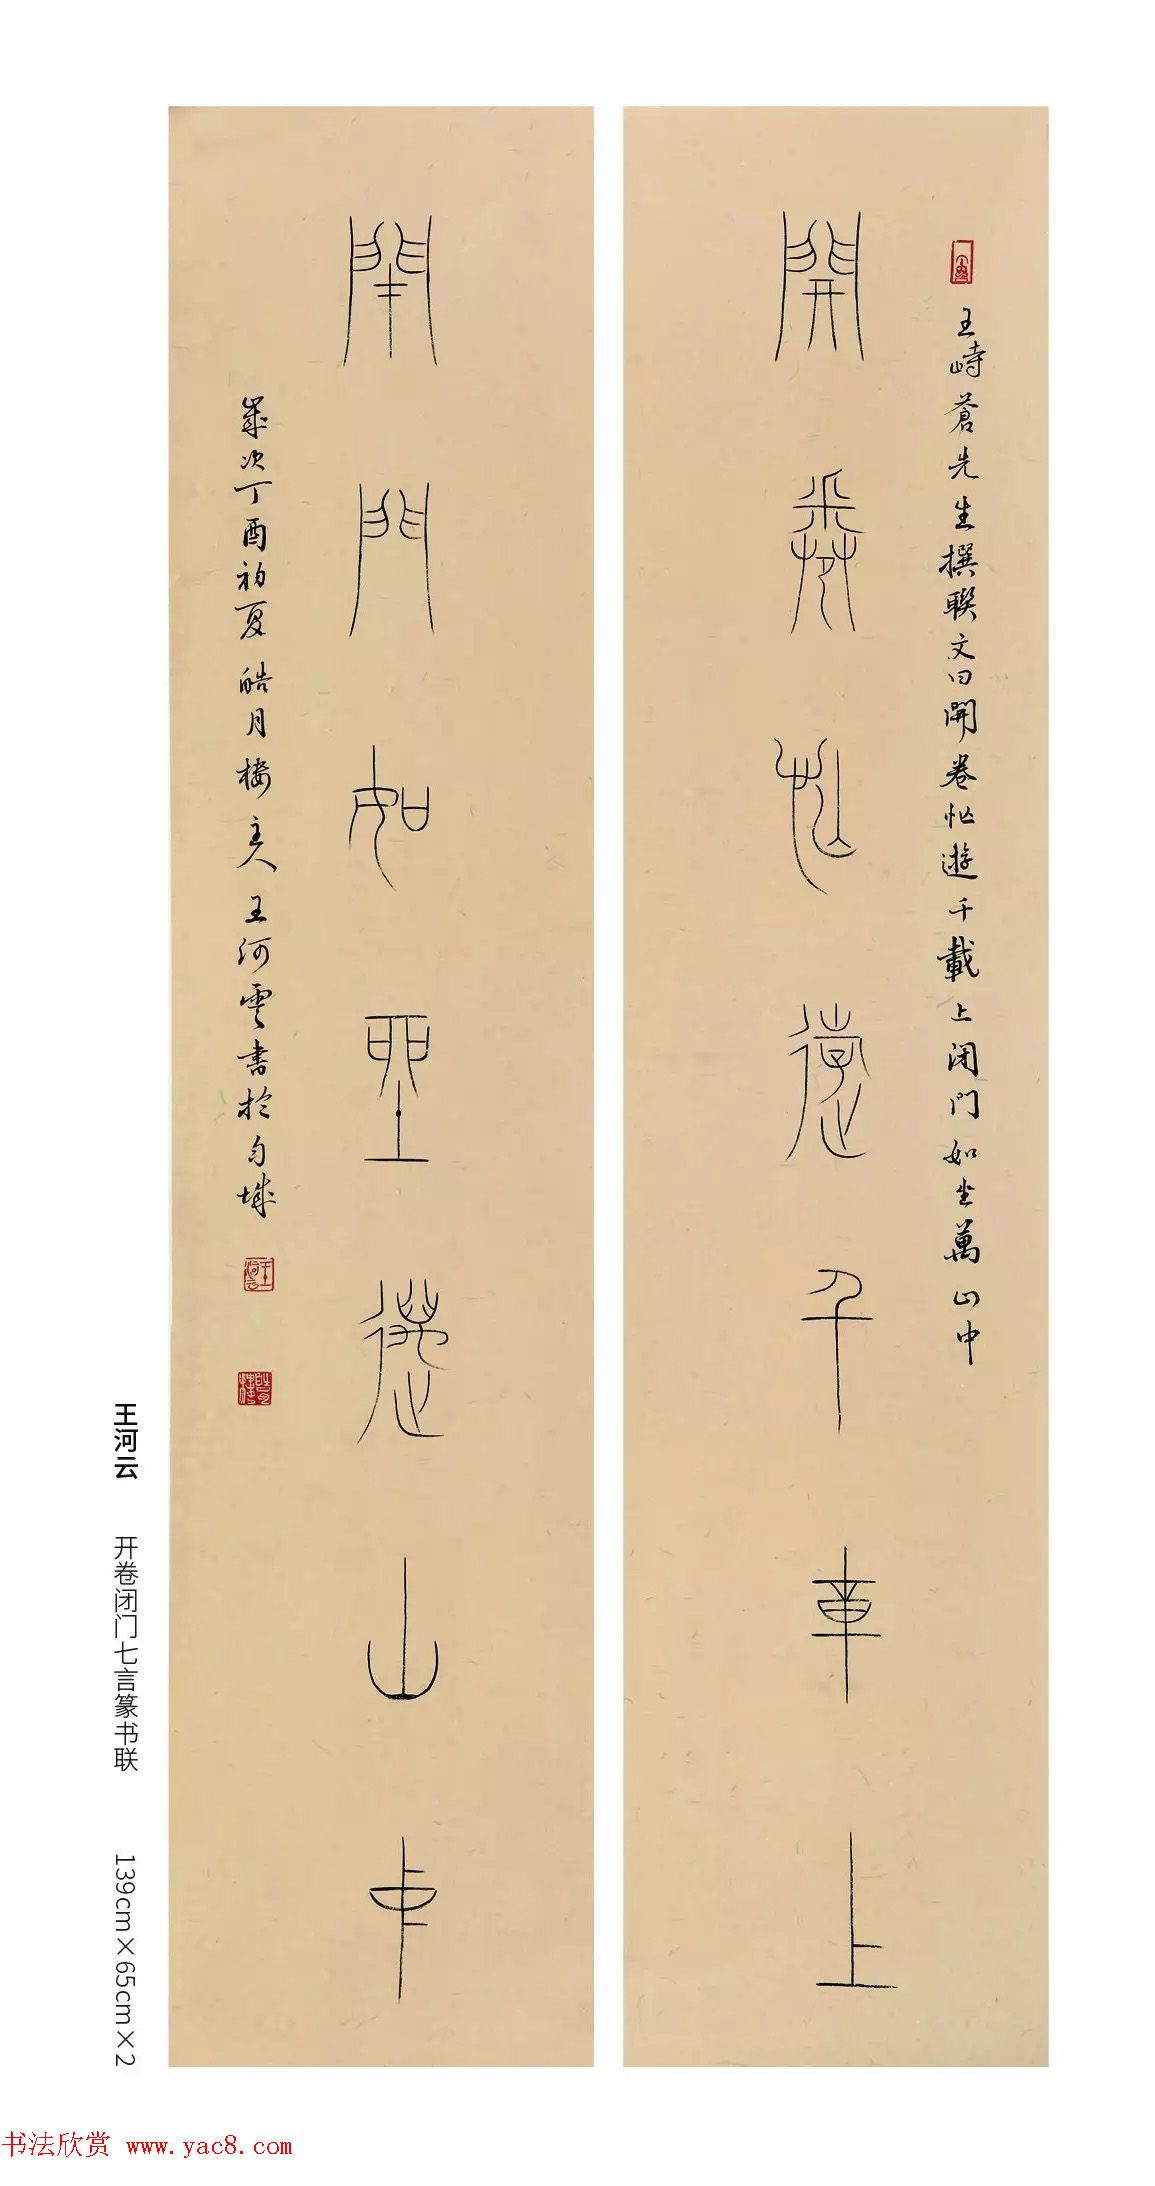 王峙蒼先生撰聯文曰開卷忙遊千載上闭門如坐萬山中
開卷忙遊千章上
閉門如坐萬山中
歲次丁酉初夏皓月樓主人王河雲書於
王河云
开卷闭门七言篆书联
139cm×65cm×2
书法欣赏 www.yac8.com